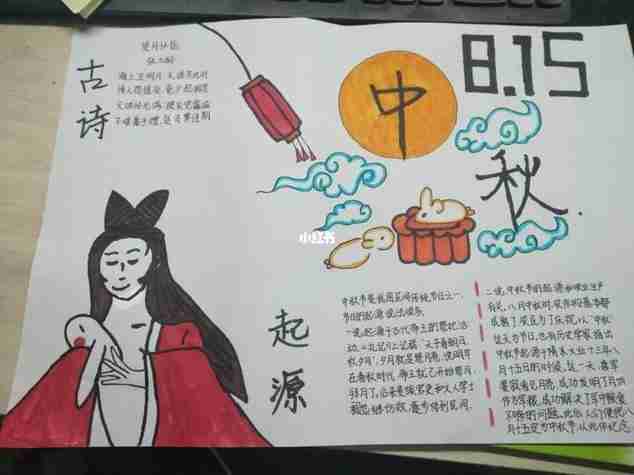 古诗
望月怀远
张九龄
海上生明月 天涯共此时
情人怨遥夜 竟夕起相思
灭烛怜光满 披衣觉露滋
不堪盈手赠 还寝梦佳期
8.15
中
秋
小红书
起源
中秋节是我国民间传统节日之一,
节日的起源说法很多。
一说,起源于古代帝王的祭祀活
动。《礼记》上记载:"天子春朝日,
秋夕月",夕月就是祭月亮,说明早
在春秋时代,帝王就已开始祭月
拜月了,后来贵族官吏和文人学士
相继仿效,逐步传到民间。
二说,中秋节的起源和农业生产
有关。八月中秋时,农作物
成熟了,农民为了庆祝,以"中秋"
这天为节日。也有历史学家指出
中秋节起源于隋末大业十三年八
月十五日
月饼
军粮,成功解决了军中粮食
不够的问题。此后人们便把八
月十五定为中秋节,从此作纪念